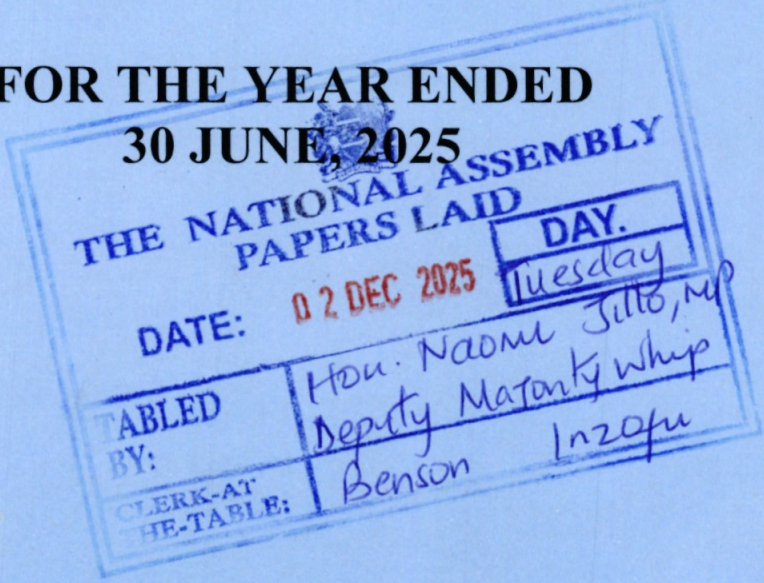 FOR THE YEAR ENDED
30 JUNE, 2025
THE NATIONAL ASSEMBLY
PAPERS LAID
DATE: 02 DEC 2025
DAY.
Tuesday
TABLED BY:
Hon. Naomi Jillo, MP
Deputy Majority Whip
CLERK-AT THE-TABLE:
Benson Inzofu